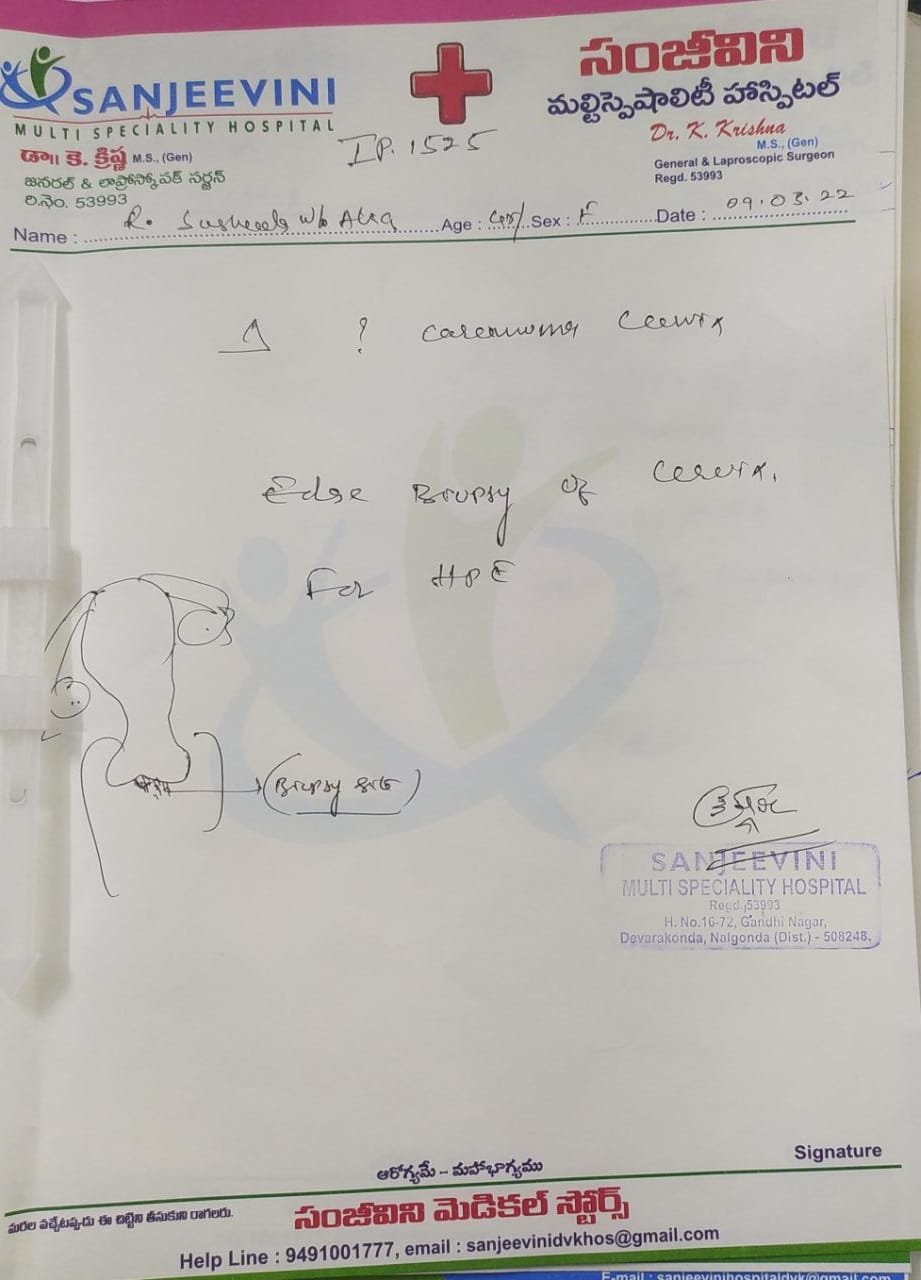 SANJEEVINI
MULTI SPECIALITY HOSPITAL
డా॥ కె. క్రిష్ణ M.S., (Gen)
జనరల్ & లాప్రోస్కోపక్ సర్జన్
రి.నెం. 53993
IP. 1525
సంజీవిని
మల్టిస్పెషాలిటీ హాస్పిటల్
Dr. K. Krishna
M.S., (Gen)
General & Laproscopic Surgeon
Regd. 53993
Name : R. Susheela w/o Age : Sex : F Date : 09.03.22
? Carcinoma Cervix
Edge Biopsy of Cervix.
For HPE
(Biopsy site)
SANJEEVINI
MULTI SPECIALITY HOSPITAL
Regd. 53993
H. No.16-72, Gandhi Nagar,
Devarakonda, Nalgonda (Dist.) - 508248.
Signature
ఆరోగ్యమే – మహాభాగ్యము
మరల వచ్చేటప్పుడు ఈ చిట్టిని తీసుకుని రాగలరు.
సంజీవిని మెడికల్ స్టోర్స్
Help Line : 9491001777, email : sanjeevinidvkhos@gmail.com
E-mail : sanjeevinihospitaldvk@gmail.com